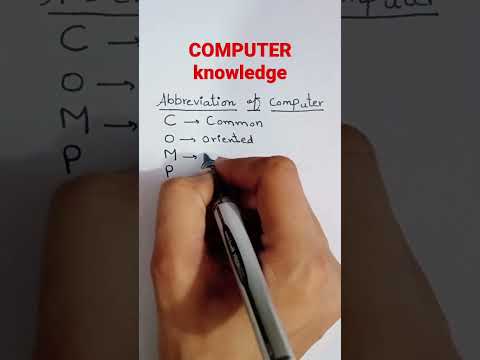 COMPUTER
knowledge
Abbreviation of Computer
C → Common
O → Oriented
M →
P